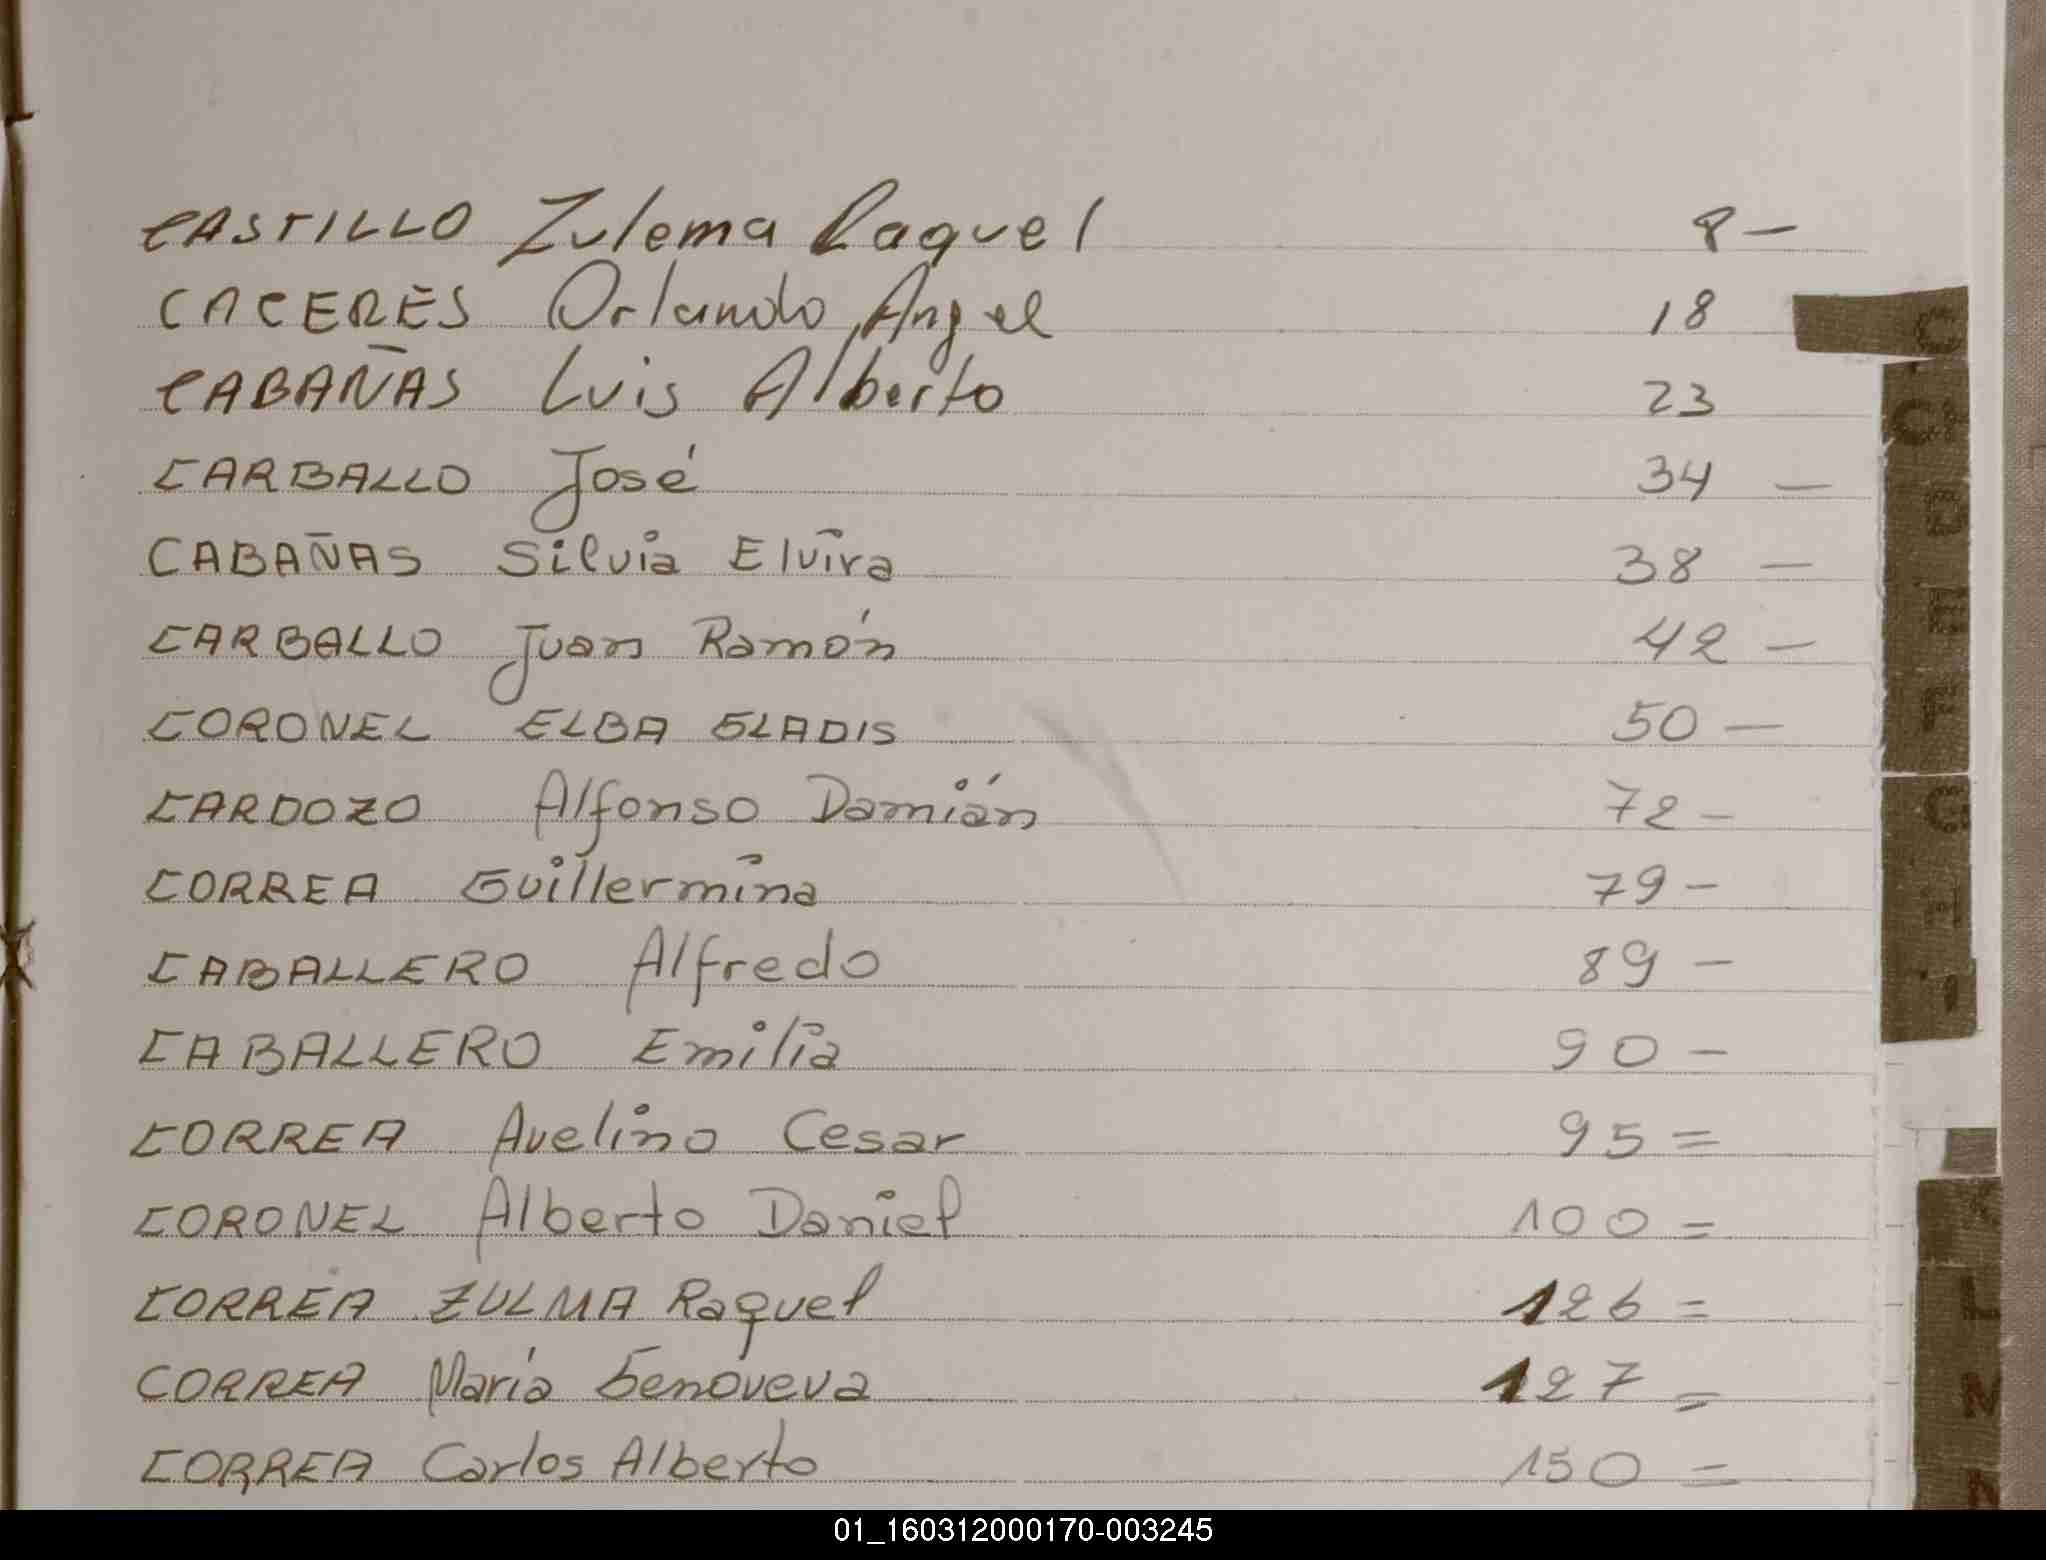 CASTILLO Zulema Raquel 8 -
CACERES Orlando Angel 18
CABAÑAS Luis Alberto 23
CARBALLO José 34 -
CABAÑAS Silvia Elvira 38 -
CARBALLO Juan Ramón 42 -
CORONEL ELBA GLADIS 50 -
CARDOZO Alfonso Damián 72 -
CORREA Guillermina 79 -
CABALLERO Alfredo 89 -
CABALLERO Emilia 90 -
CORREA Avelino Cesar 95 =
CORONEL Alberto Daniel 100 =
CORREA ZULMA Raquel 126 =
CORREA María Genoveva 127 =
CORREA Carlos Alberto 150 =
C
CH
D
E
F
G
H
I
K
L
M
N
01_160312000170-003245